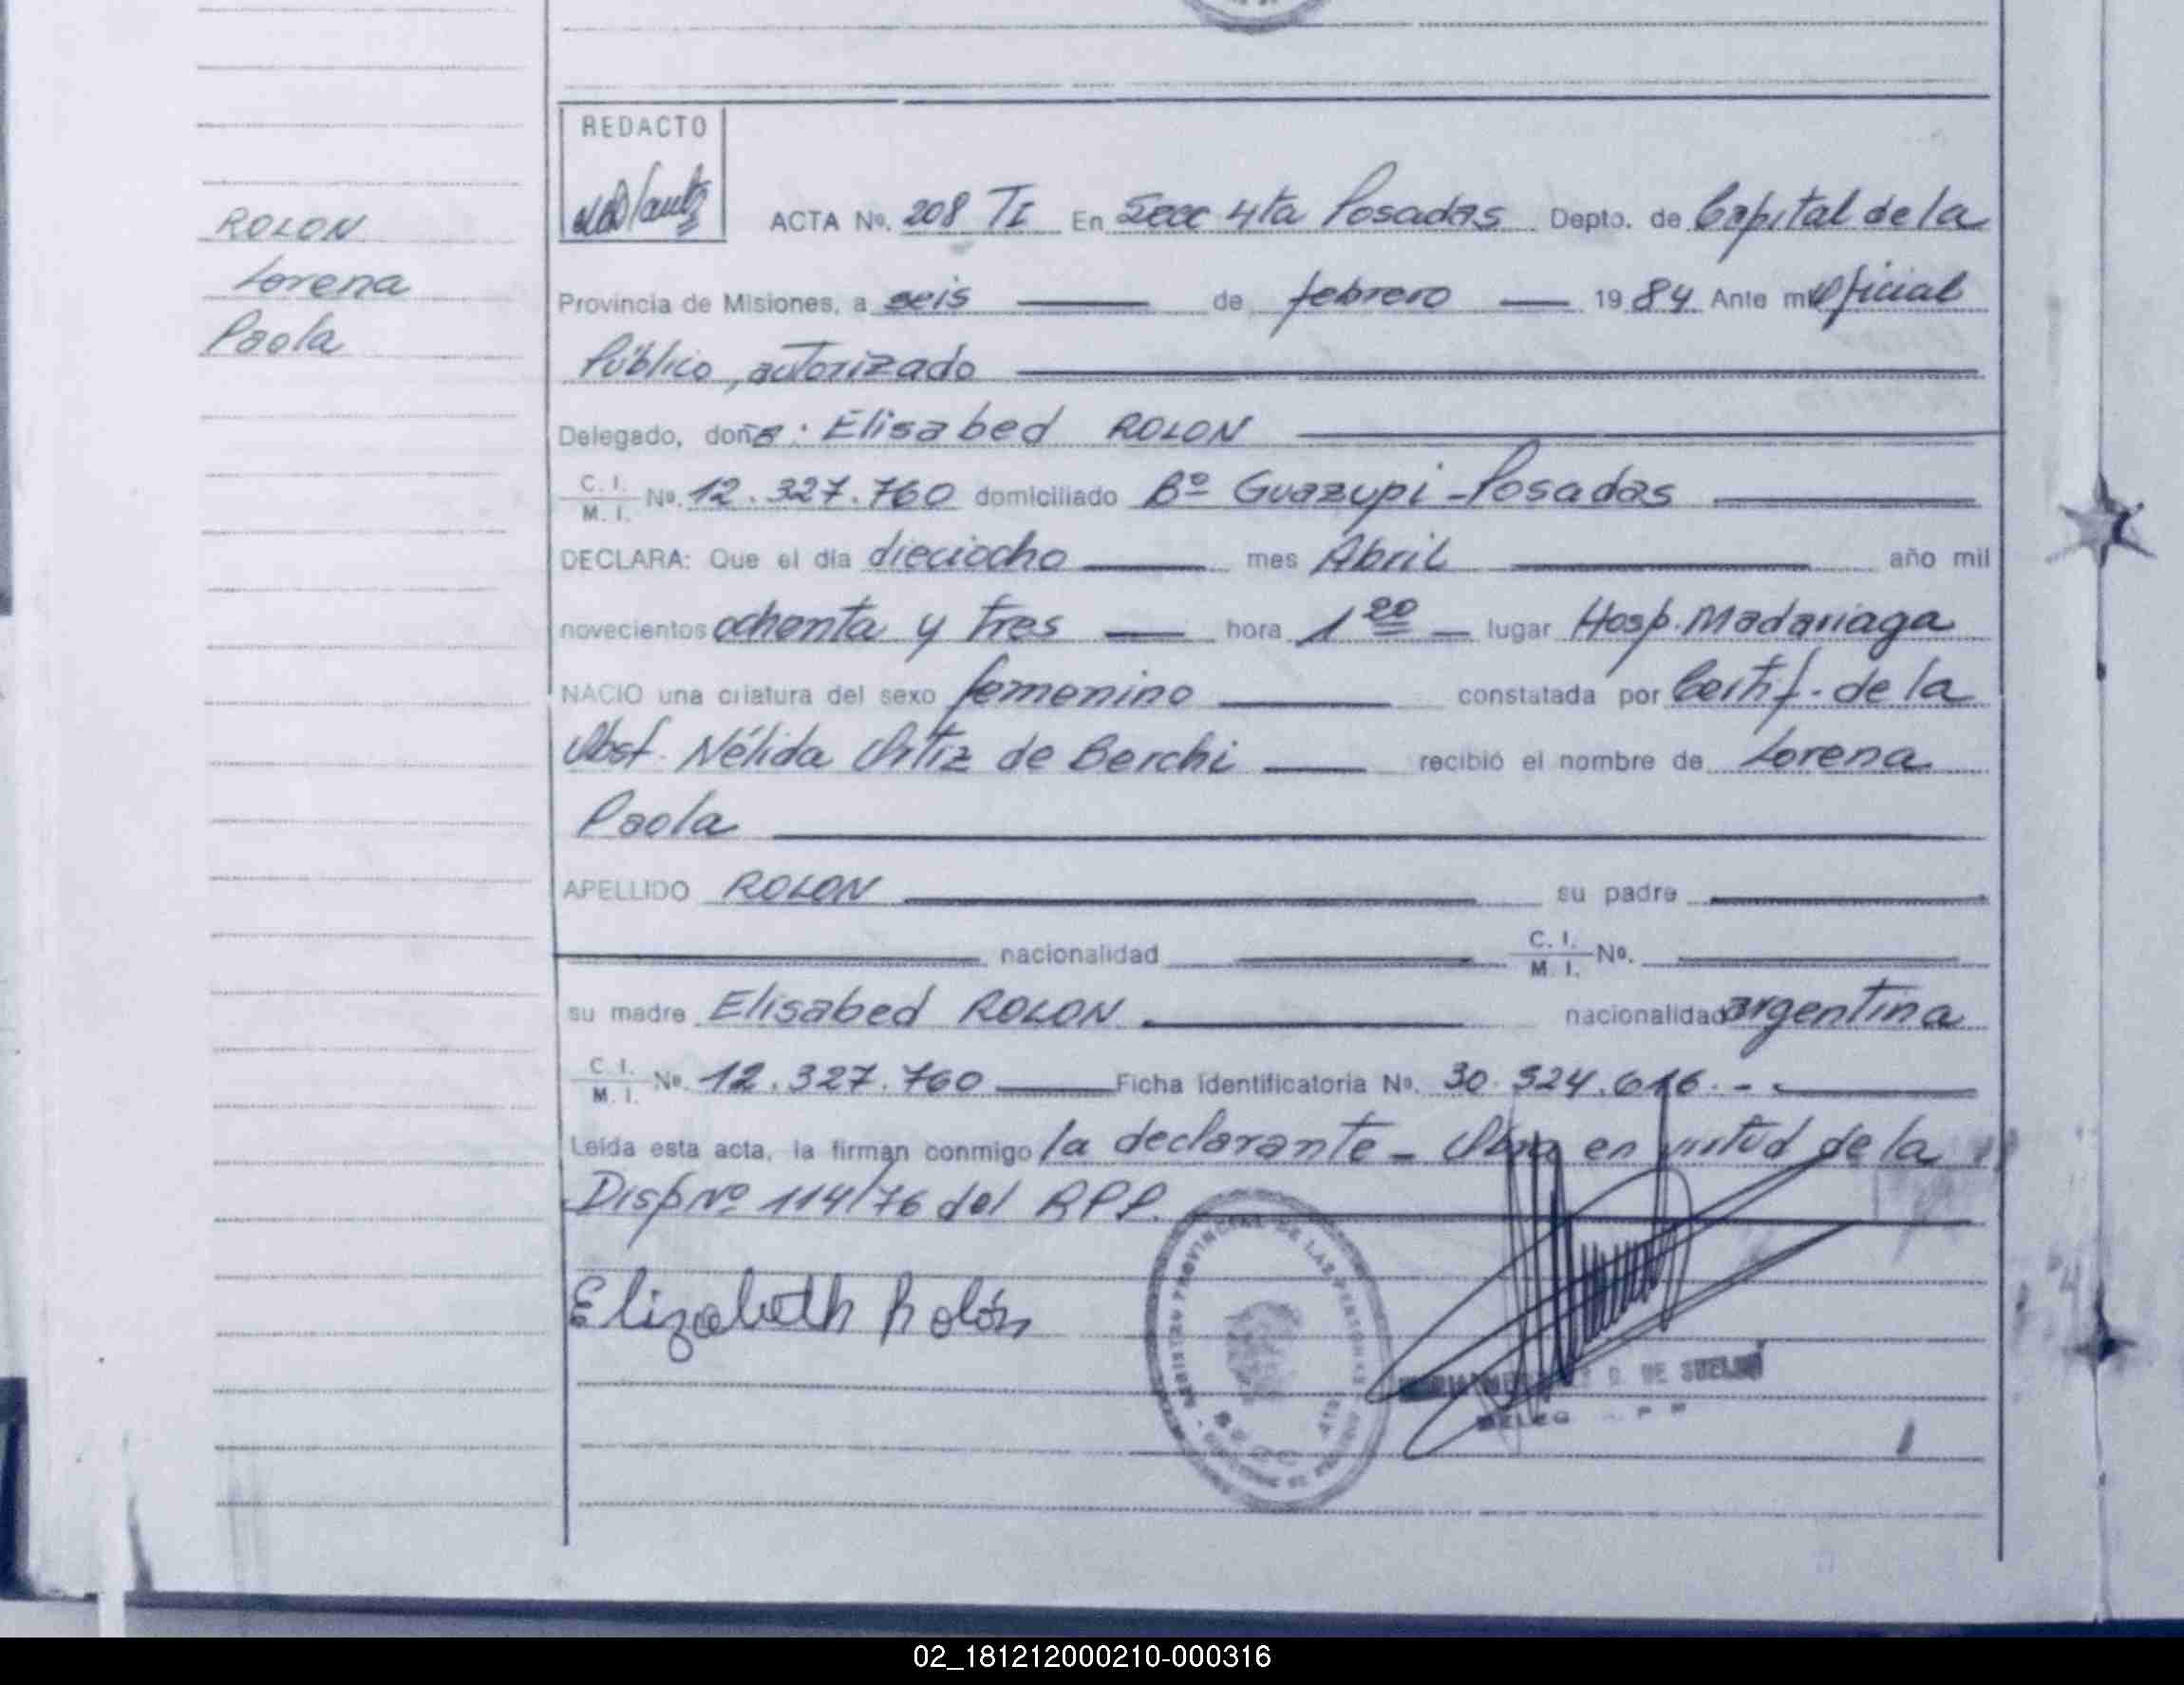 ROLON
Lorena
Paola
REDACTO
ACTA Nº. 208 TI En Secc 4ta Posadas Depto. de Capital de la
Provincia de Misiones, a seis de febrero 1984 Ante mi Oficial
Público, autorizado
Delegado, doña: Elisabed ROLON
C. I. / M. I. Nº. 12.327.760 domiciliado Bº Guazupi - Posadas
DECLARA: Que el día dieciocho mes Abril año mil
novecientos ochenta y tres hora 1 20 lugar Hosp. Madariaga
NACIO una criatura del sexo femenino constatada por Certif. de la
Obst. Nélida Ortiz de Berchi recibió el nombre de Lorena
Paola
APELLIDO ROLON su padre
nacionalidad C. I. / M. I. Nº.
su madre Elisabed ROLON nacionalidad argentina
C. I. / M. I. Nº. 12.327.760 Ficha identificatoria Nº. 30.324.616.-
Leída esta acta, la firman conmigo la declarante - Obra en virtud de la
Disp Nº 114/76 del RPP.
Elizabeth Rolón
PROVINCIAL DE LAS PERSONAS
DE SUELDO
DELEG
02_181212000210-000316